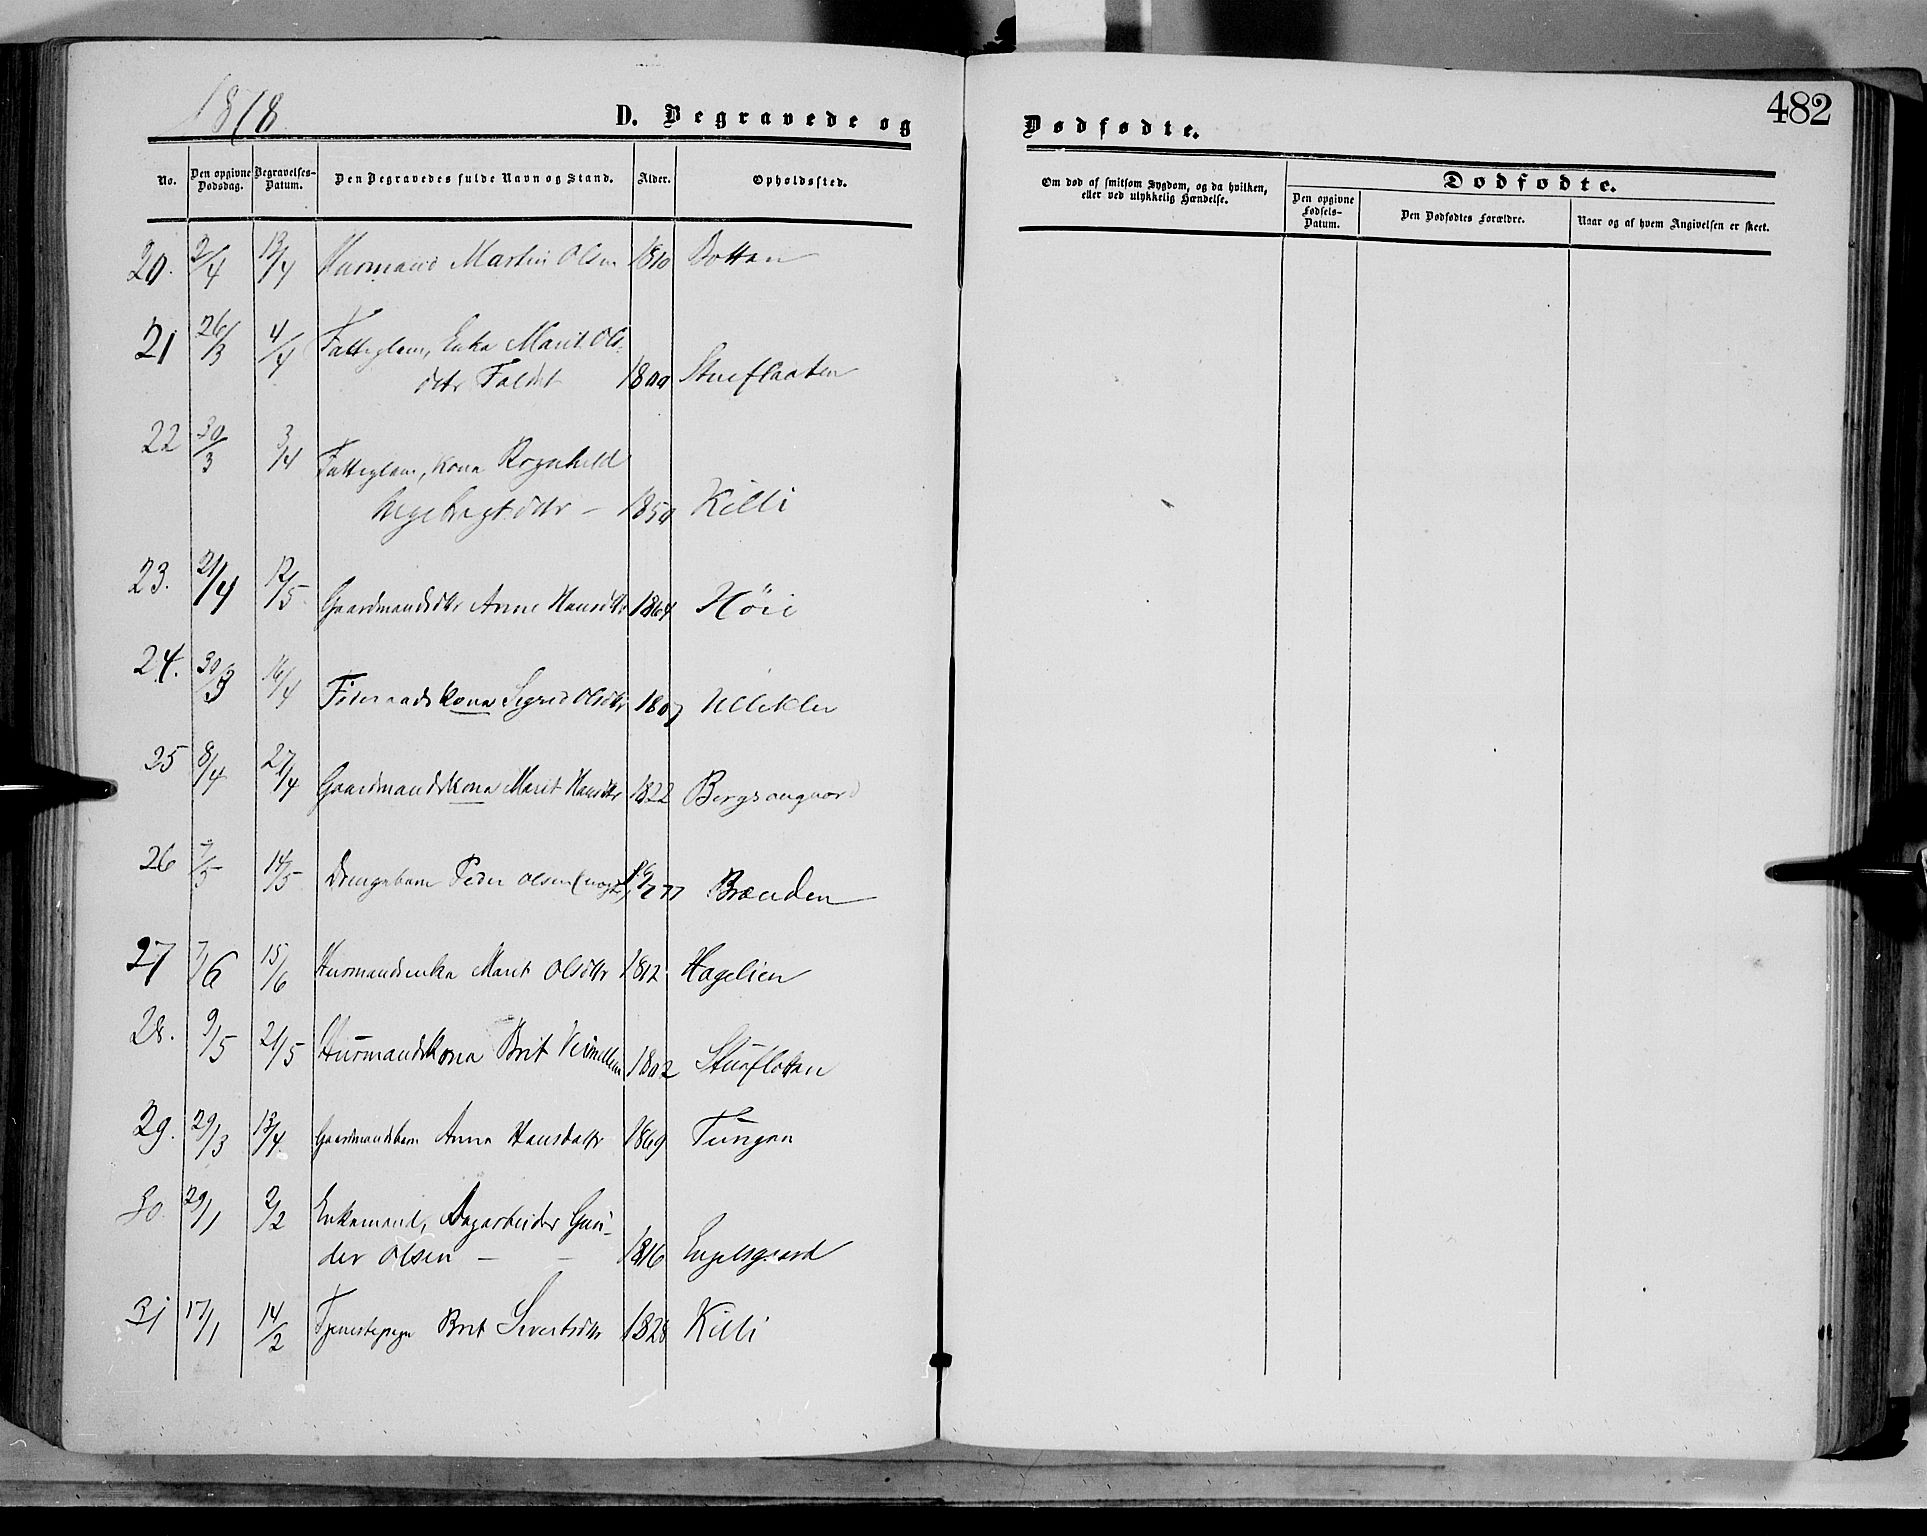 1878
D. Begravede og
Dødfødte.
482
No.
Den opgivne Dødsdag.
Begravelses-Datum.
Den Begravedes fulde Navn og Stand.
Alder.
Opholdssted.
Om død af smitsom Sygdom, og da hvilken,
eller ved ulykkelig Hændelse.
Dødfødte.
Den opgivne Fødsels-Datum.
Den Dødfødtes Forældre.
Naar og af hvem Angivelsen er skeet.
20. 2/4 13/4 Husmand Martin Olsen 1810 Botten
21 26/3 4/4 Fattiglem, Enke Marit Ols-
dtr 1809 Stueflaaten
22 30/3 3/4 Fattiglem, Kona Ragnhild
Ingebrigtsdtr – 1850 Killi
23. 21/4 12/5 Gaardmandsdtr Anne Hansdtr 1864 Höie
24. 30/3 16/4 Föderaadskona Sigrid Olsdtr 1807 Ulleklev
25 8/4 27/4 Gaardmandskona Marit Hansdtr 1822
26 7/5 14/5 Drengebarn Peder Olsen Brænden
27 7/6 15/6 Husmandsenke Marit Olsdtr 1812 Hagelien
28. 9/5 21/5 Husmandskona Brit 1802 Stueflotten
29. 29/3 13/4 Gaardmandsbarn Anne Hansdatter 1869 Tungen
30. 29/1 2/2 Enkemand, Dagarbeider Gun-
der Olsen – – 1816 Engelsgaard
31 17/1 14/2 Tjenestepige Brit Sivertsdtr 1828 Killi